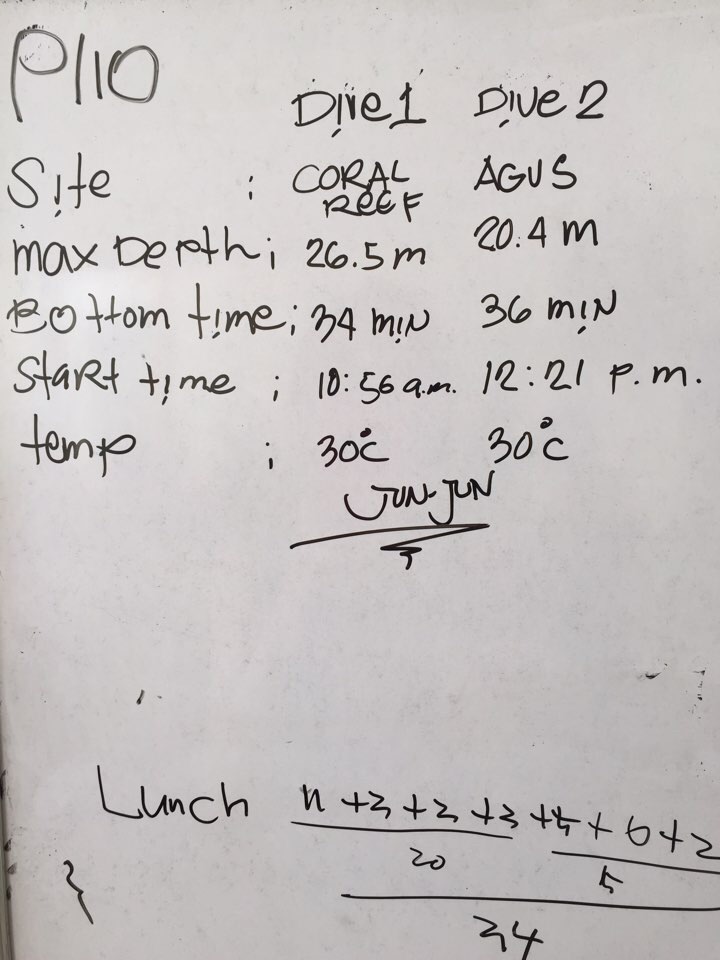 P110
Dive 1 Dive 2
Site : CORAL REEF AGUS
max Depth ; 26.5 m 20.4 m
Bottom time ; 34 min 36 min
Start time ; 10:56 a.m. 12:21 p.m.
temp ; 30°c 30°c
JUN-JUN
Lunch +3 +3 + 6 + 2
20 5
34